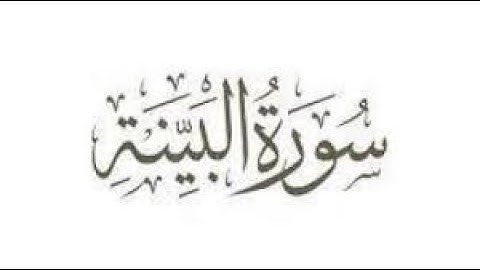 سُورَةُ البَيِّنَةِ